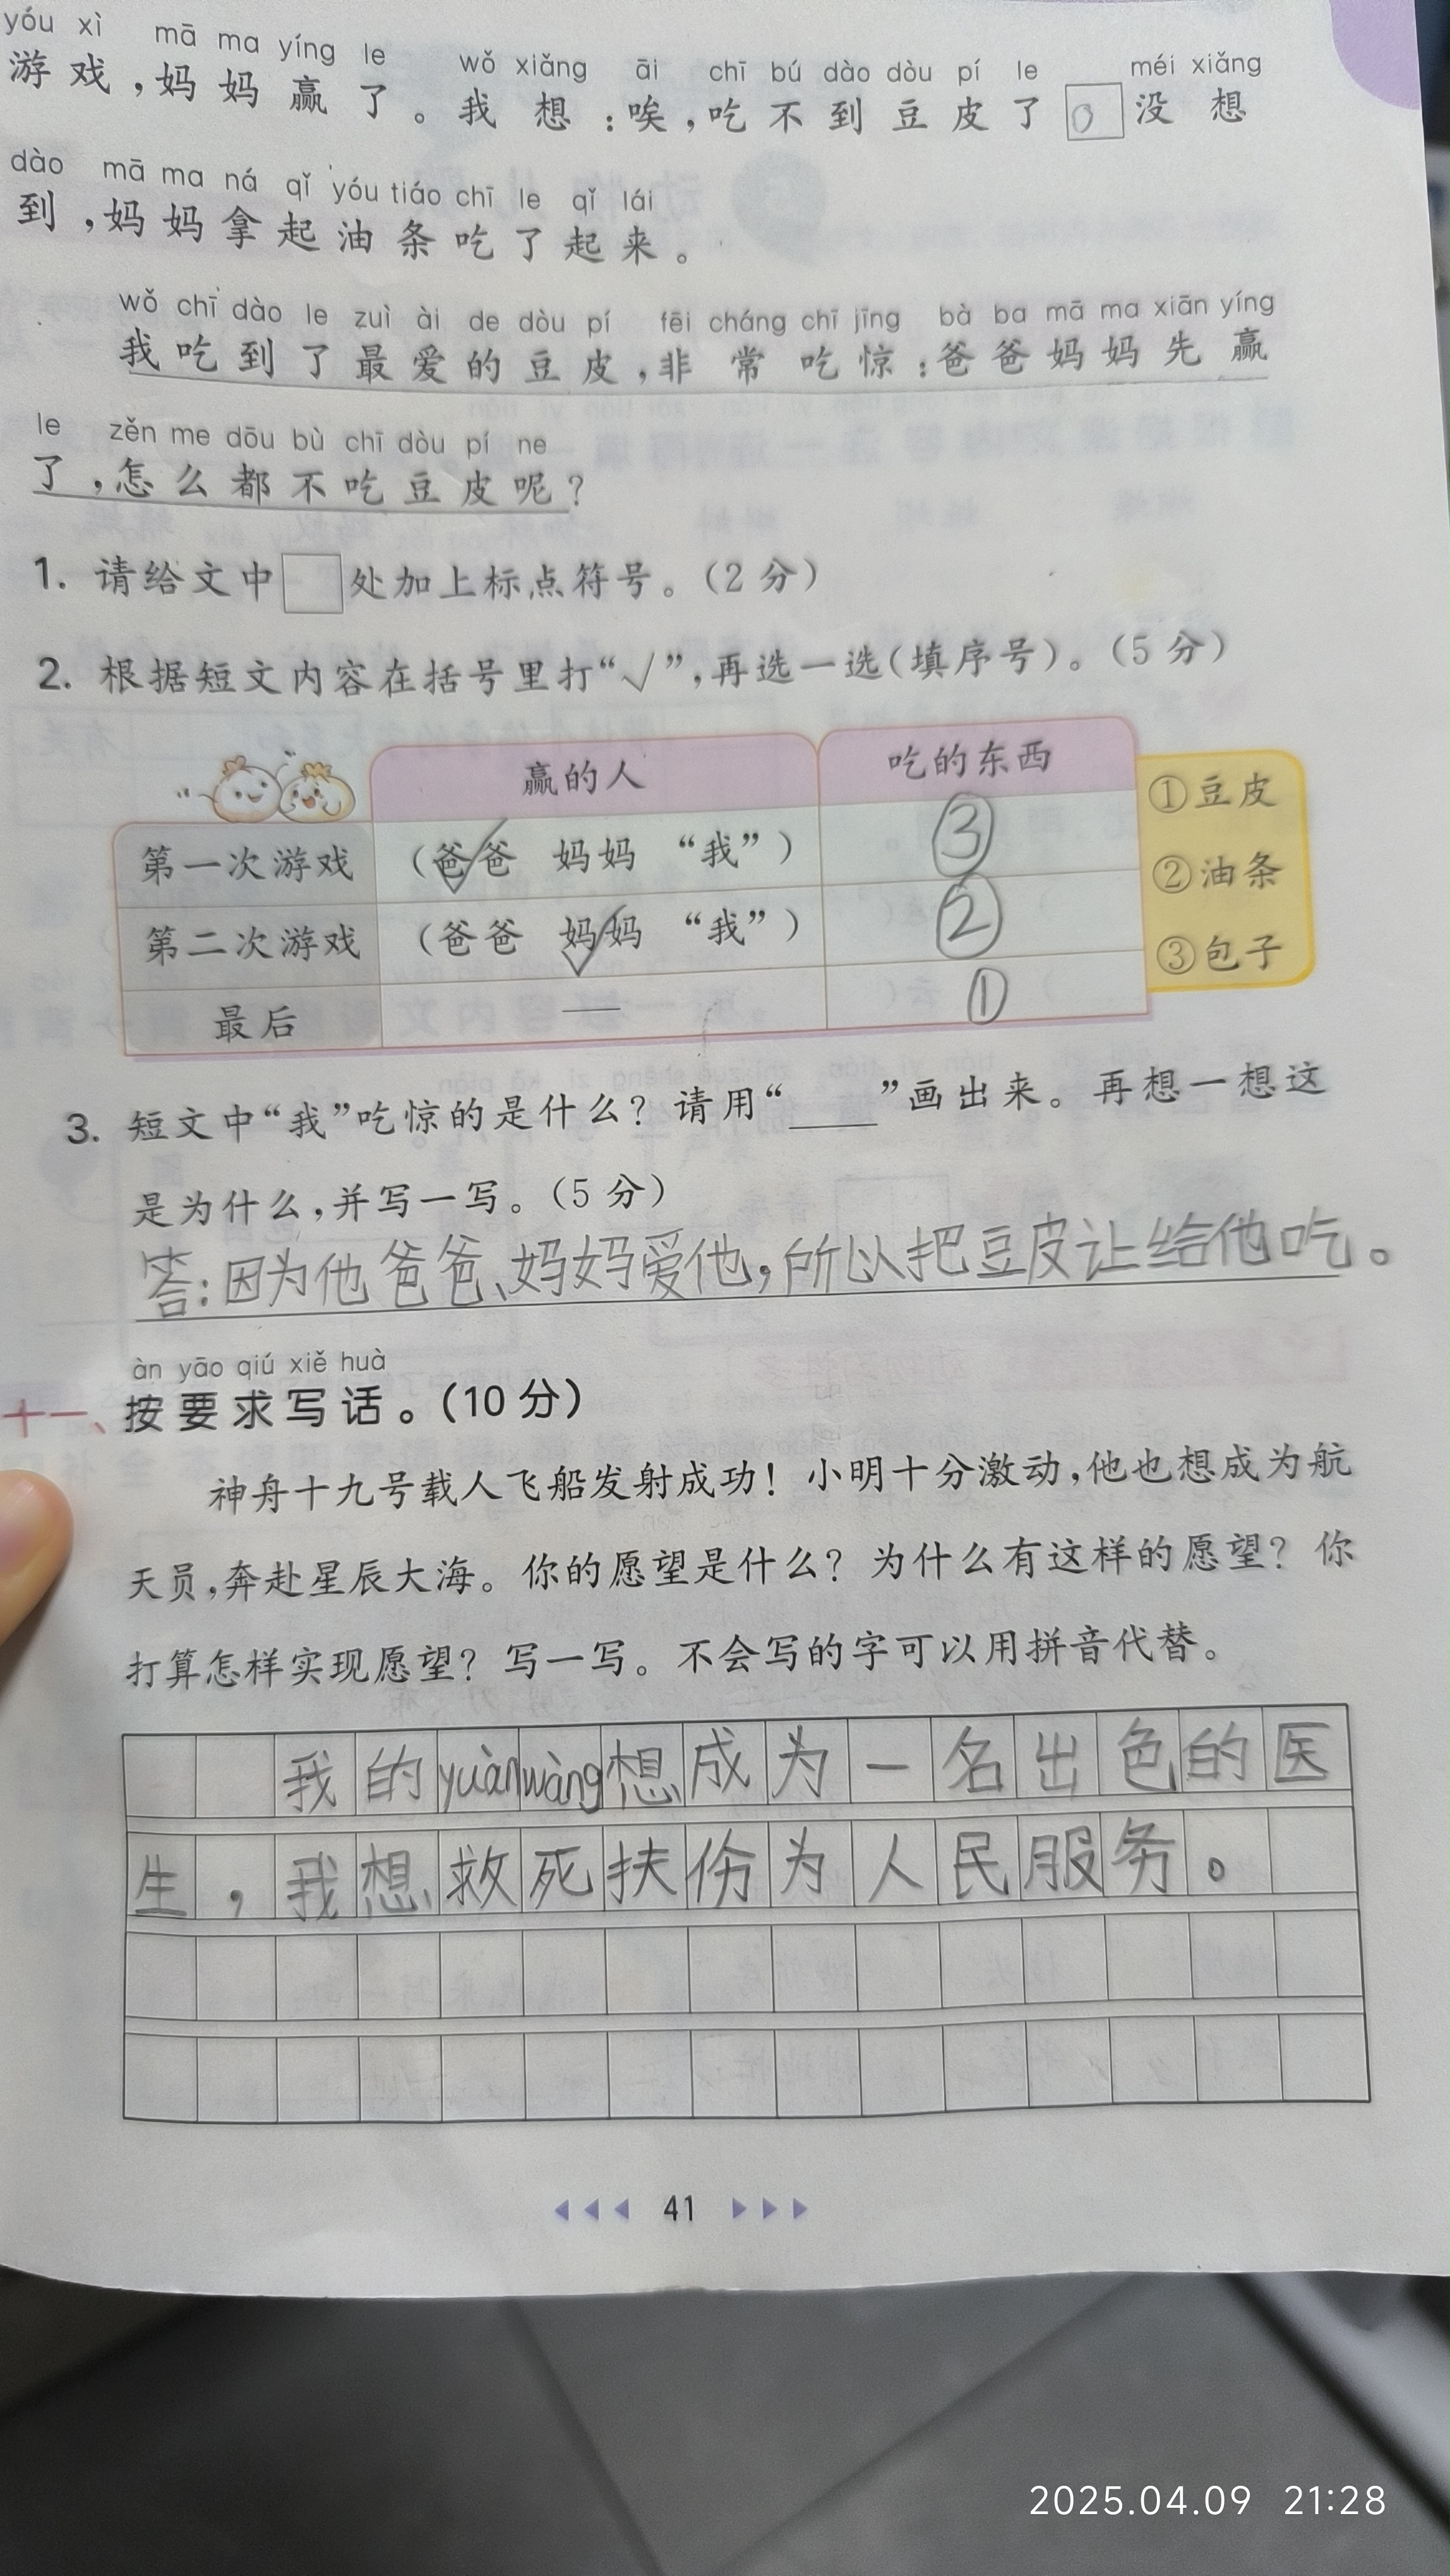 yóu xì mā ma yíng le wǒ xiǎng āi chī bú dào dòu pí le méi xiǎng
游戏，妈妈赢了。我想：唉，吃不到豆皮了。没想
dào mā ma ná qǐ yóu tiáo chī le qǐ lái
到，妈妈拿起油条吃了起来。
wǒ chī dào le zuì ài de dòu pí fēi cháng chī jīng bà ba mā ma xiān yíng
我吃到了最爱的豆皮，非常吃惊：爸爸妈妈先赢
le zěn me dōu bù chī dòu pí ne
了，怎么都不吃豆皮呢？
1. 请给文中□处加上标点符号。（2分）
2. 根据短文内容在括号里打“√”，再选一选（填序号）。（5分）
赢的人 吃的东西
①豆皮
第一次游戏 （爸爸 妈妈 “我”） ③
②油条
第二次游戏 （爸爸 妈妈 “我”） ②
③包子
最后 — ①
3. 短文中“我”吃惊的是什么？请用“____”画出来。再想一想这
是为什么，并写一写。（5分）
答：因为他爸爸、妈妈爱他，所以把豆皮让给他吃。
àn yāo qiú xiě huà
十一、按要求写话。（10分）
神舟十九号载人飞船发射成功！小明十分激动，他也想成为航
天员，奔赴星辰大海。你的愿望是什么？为什么有这样的愿望？你
打算怎样实现愿望？写一写。不会写的字可以用拼音代替。
我的yuànwàng想成为一名出色的医
生，我想救死扶伤为人民服务。
41
2025.04.09 21:28